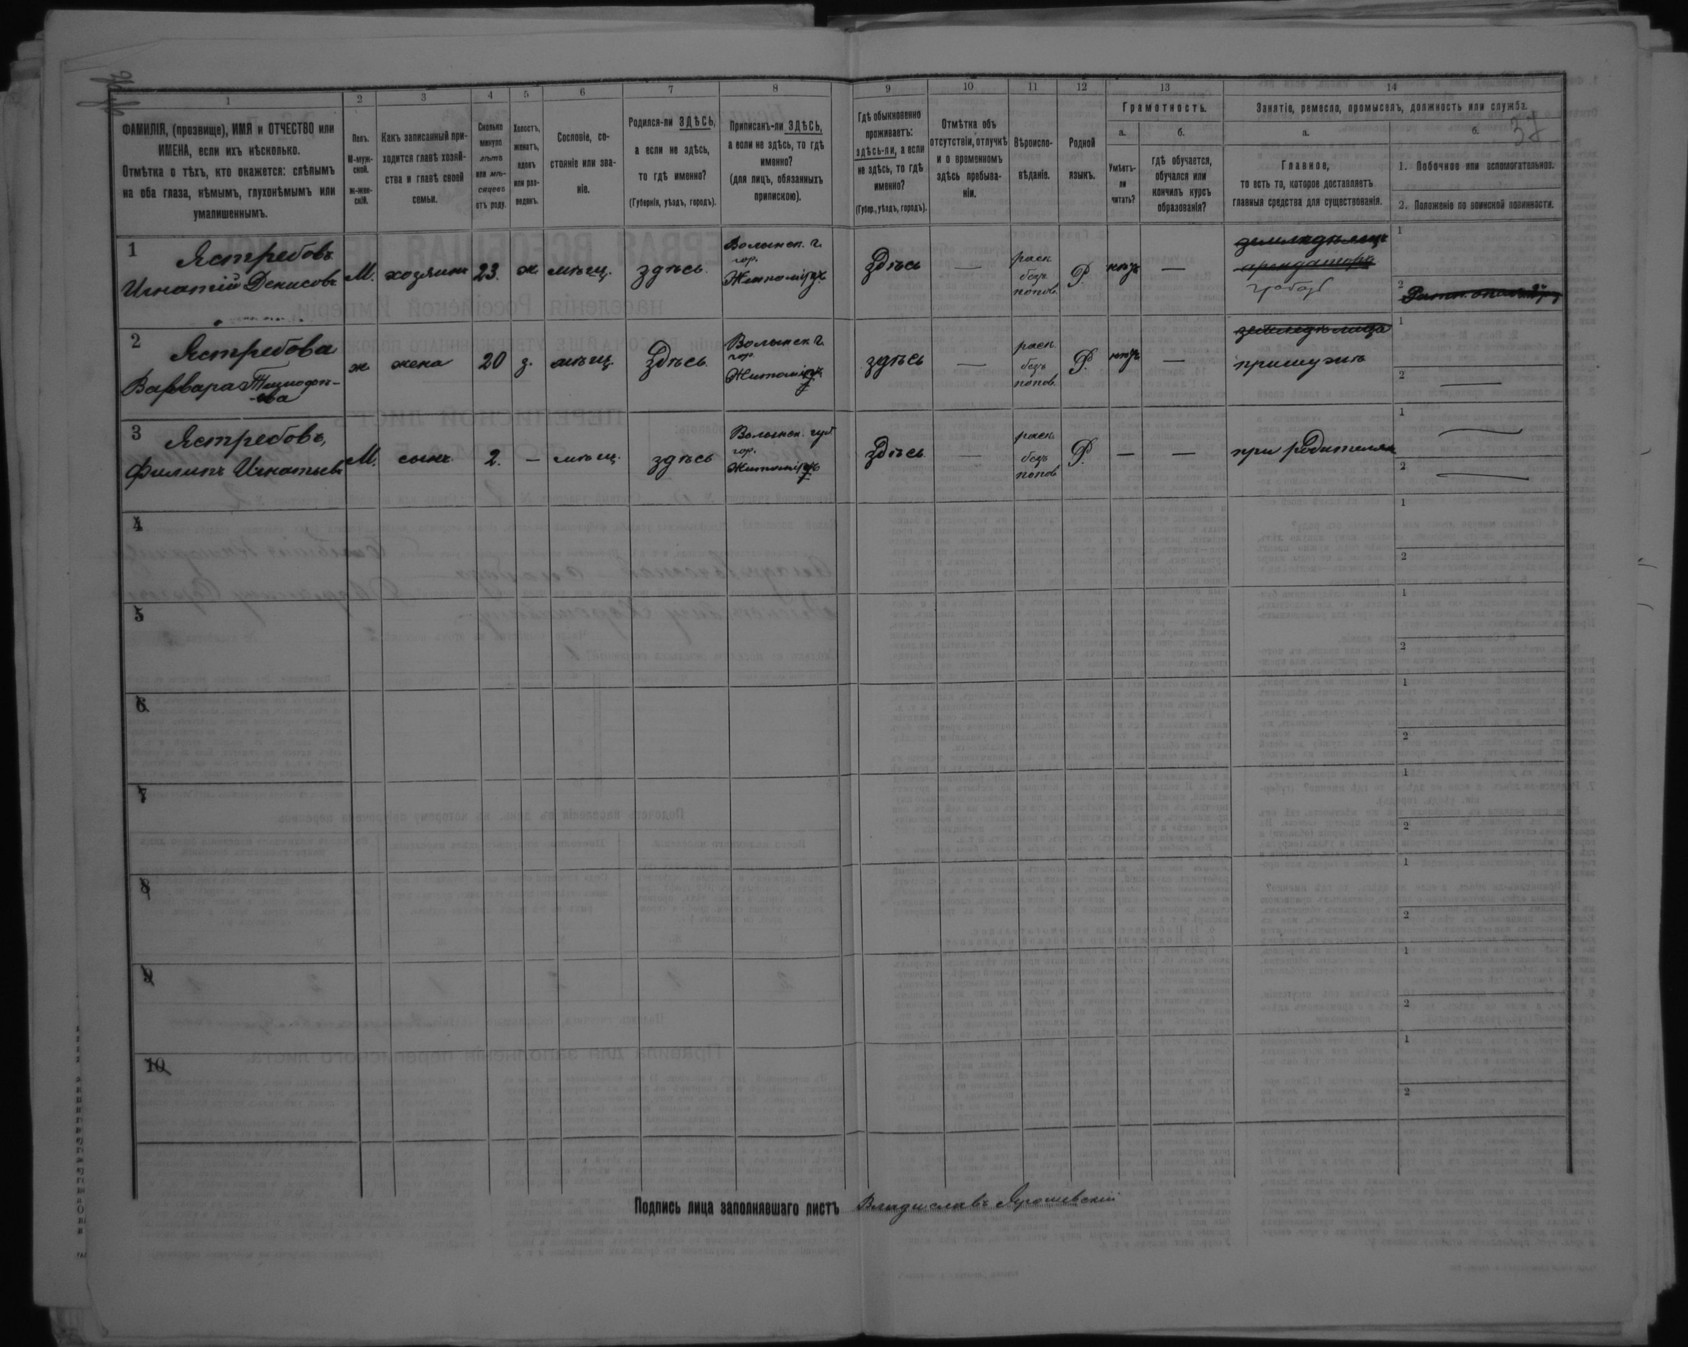 1
2
3
4
5
6
7
8
9
10
11
12
13
14
ФАМИЛІЯ, (прозвище), ИМЯ и ОТЧЕСТВО или
ИМЕНА, если ихъ нѣсколько.
Отмѣтка о тѣхъ, кто окажется: слѣпымъ
на оба глаза, нѣмымъ, глухонѣмымъ или
умалишеннымъ.
Полъ.
М-муж-
ской.
ж-жен-
скій.
Какъ записанный при-
ходится главѣ хозяй-
ства и главѣ своей
семьи.
Сколько
минуло
лѣтъ
или мѣ-
сяцевъ
отъ роду.
Холостъ,
женатъ,
вдовъ
или раз-
веденъ.
Сословіе, со-
стояніе или зва-
ніе.
Родился-ли ЗДѢСЬ,
а если не здѣсь,
то гдѣ именно?
(Губернія, уѣздъ, городъ).
Приписанъ-ли ЗДѢСЬ,
а если не здѣсь, то гдѣ
именно?
(для лицъ, обязанныхъ
припискою).
Гдѣ обыкновенно
проживаетъ:
здѣсь-ли, а если
не здѣсь, то гдѣ
именно?
(Губер., уѣздъ, городъ).
Отмѣтка объ
отсутствіи, отлучкѣ
и о временномъ
здѣсь пребыва-
ніи.
Вѣроиспо-
вѣданіе.
Родной
языкъ.
Грамотность.
а.
Умѣетъ-
ли
читать?
б.
гдѣ обучается,
обучался или
кончилъ курсъ
образованія?
Занятіе, ремесло, промыселъ, должность или служба.
37
а.
Главное,
то есть то, которое доставляетъ
главныя средства для существованія.
б.
1. Побочное или вспомогательное.
2. Положеніе по воинской повинности.
1
Ястребовъ
Игнатій Денисовъ
М.
хозяинъ
23.
ж
мѣщ.
здѣсь.
Волынск. г.
гор.
Житоміръ
Здѣсь
—
раск
безъ
попов.
Р.
нѣтъ
—
земледѣлецъ
арендаторъ
1
2
2
Ястребова
Варвара
ж
жена
20
з.
мѣщ.
Здѣсь.
Волынск г.
гор.
Житоміръ
здѣсь
—
раск
безъ
попов.
Р.
нѣтъ
—
при мужѣ
1
2 —
3
Ястребовъ,
Филипъ Игнатьевъ
М.
сынъ
2.
—
мѣщ.
здѣсь
Волынск. губ
гор.
Житоміръ
Здѣсь
—
раск.
безъ
попов
Р.
—
—
при родителяхъ
1 —
2 —
4
1
2
5
1
2
6
1
2
7
1
2
8
1
2
9
1
2
10
1
2
Подпись лица заполнявшаго листъ Владиславъ Ярошевскій